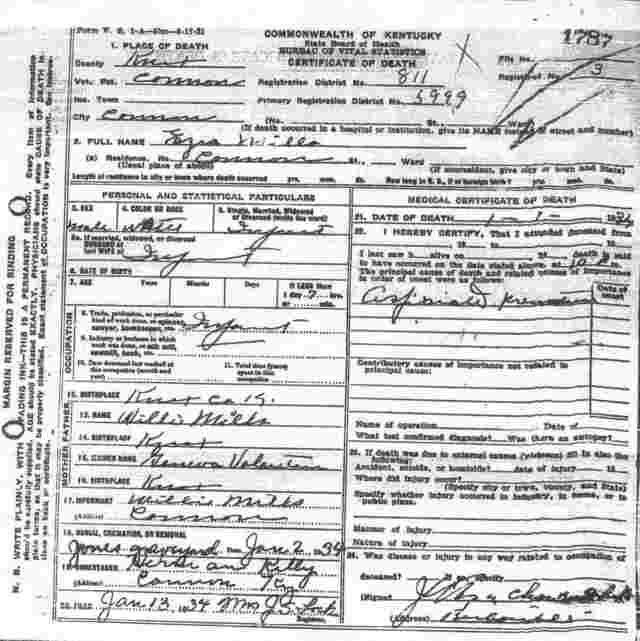 Form V. S. 1-A
COMMONWEALTH OF KENTUCKY
State Board of Health
BUREAU OF VITAL STATISTICS
CERTIFICATE OF DEATH
1787
1. PLACE OF DEATH
County Knox
File No.
Registration District No. 811
Registrar's No. 3
Vot. Pct. Cannon
Inc. Town
Primary Registration District No. 5999
City Cannon (No. St., Ward)
(If death occurred in a hospital or institution, give its NAME instead of street and number)
2. FULL NAME Ezra Mills
(a) Residence. No. Cannon St., Ward
(Usual place of abode) (If nonresident, give city or town and State)
Length of residence in city or town where death occurred yrs. mos. ds. How long in U. S., if of foreign birth? yrs. mos. ds.
PERSONAL AND STATISTICAL PARTICULARS
3. SEX
4. COLOR OR RACE
5. Single, Married, Widowed or Divorced (write the word)
Male White Infant
5a. If married, widowed, or divorced
HUSBAND of
(or) WIFE of Infant
6. DATE OF BIRTH
7. AGE Years Months Days If LESS than 1 day 7 hrs. or min.
OCCUPATION
8. Trade, profession, or particular kind of work done, as spinner, sawyer, bookkeeper, etc. Infant
9. Industry or business in which work was done, as silk mill, sawmill, bank, etc.
10. Date deceased last worked at this occupation (month and year)
11. Total time (years) spent in this occupation
12. BIRTHPLACE Knox Co Ky.
FATHER
13. NAME Willie Mills
14. BIRTHPLACE Knox
MOTHER
15. MAIDEN NAME Geneva
16. BIRTHPLACE Knox
17. INFORMANT Willie Mills
(Address) Cannon
18. BURIAL, CREMATION, OR REMOVAL
Jones graveyard Date Jan 2 1934
19. UNDERTAKER Kelly
(Address) Cannon Ky
20. FILED Jan 13, 1934 Mrs J.S.
Registrar.
MEDICAL CERTIFICATE OF DEATH
21. DATE OF DEATH 1-1- 1934
22. I HEREBY CERTIFY, That I attended deceased from
19 to 19
I last saw h alive on 19 death is said
to have occurred on the date stated above, at 10 m.
The principal cause of death and related causes of importance in order of onset were as follows:
Date of onset
Contributory causes of importance not related to principal cause:
Name of operation Date of
What test confirmed diagnosis? Was there an autopsy?
23. If death was due to external causes (violence) fill in also the following:
Accident, suicide, or homicide? date of injury 19
Where did injury occur?
(Specify city or town, county, and State)
Specify whether injury occurred in industry, in home, or in public place.
Manner of injury
Nature of injury
24. Was disease or injury in any way related to occupation of deceased? If so, specify
(Signed)
(Address)
MARGIN RESERVED FOR BINDING
N. B. WRITE PLAINLY, WITH UNFADING INK—THIS IS A PERMANENT RECORD. Every item of information should be carefully supplied. AGE should be stated EXACTLY. PHYSICIANS should state CAUSE OF DEATH in plain terms, so that it may be properly classified. Exact statement of OCCUPATION is very important.